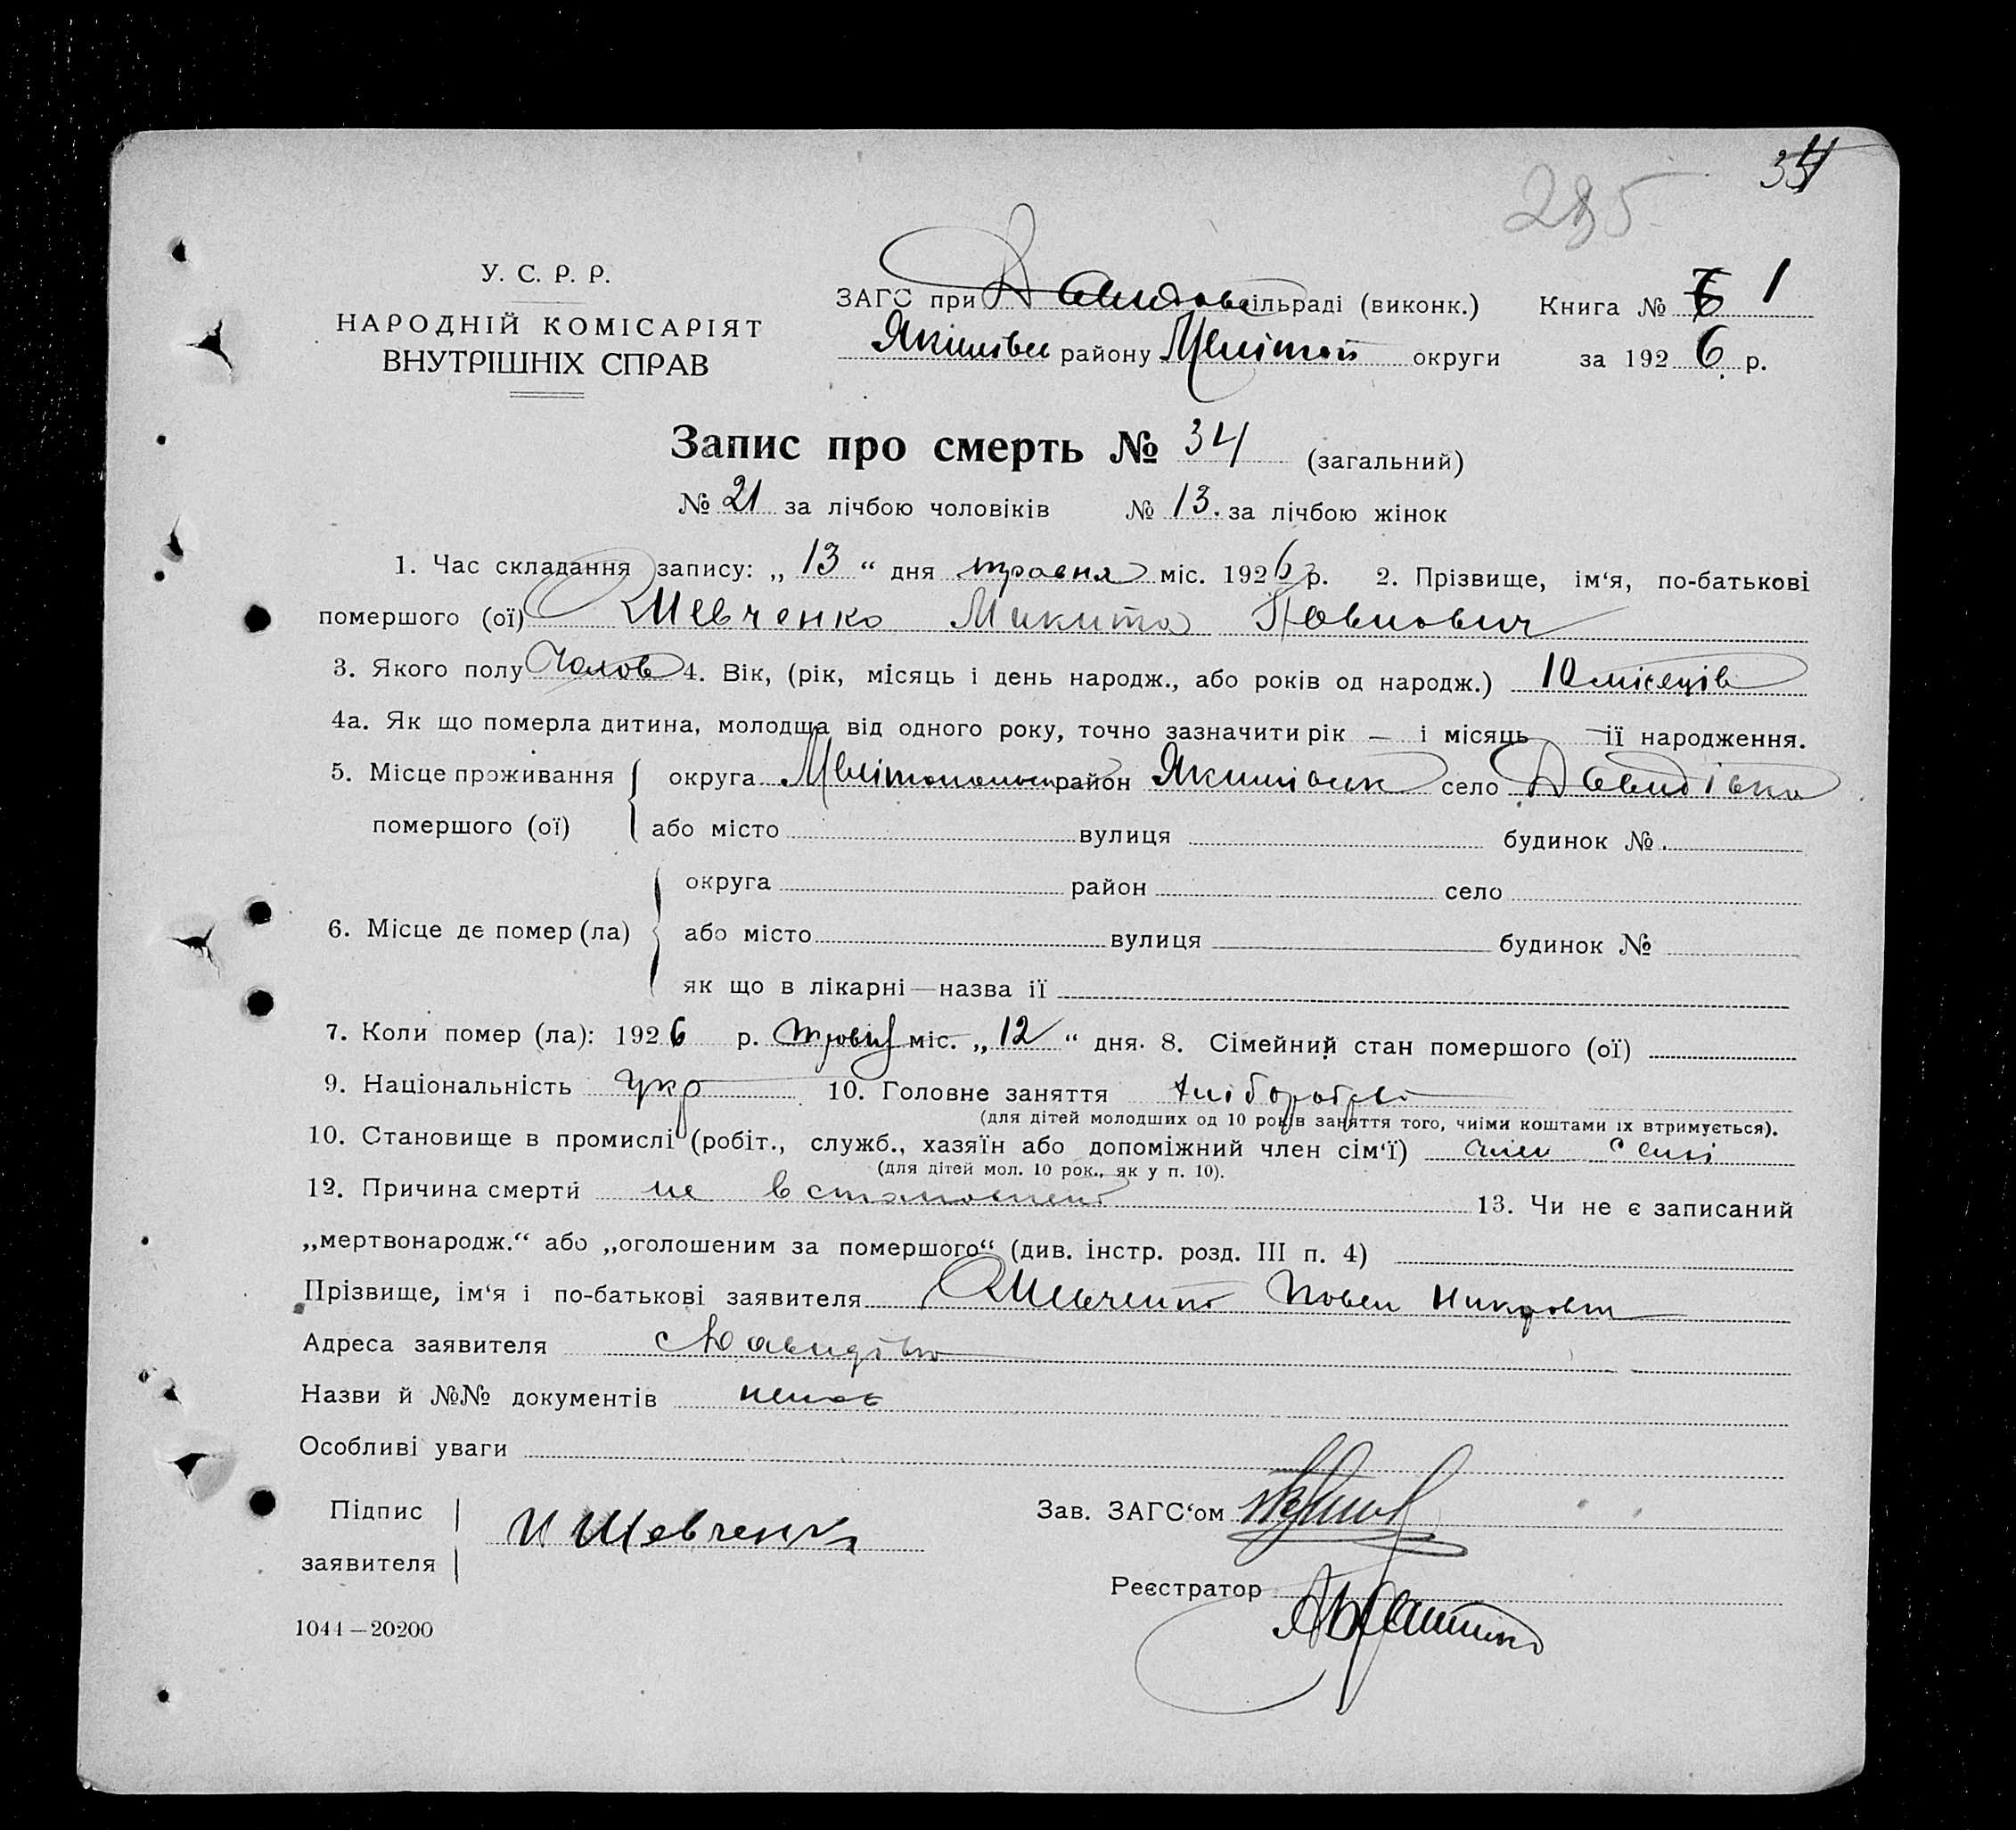 34
285
У. С. Р. Р.
НАРОДНІЙ КОМІСАРІЯТ
ВНУТРІШНІХ СПРАВ
ЗАГС при Давидовс ільраді (виконк.) Книга № 1
Якимівсь району Мелітоп округи за 1926 р.
Запис про смерть № 34 (загальний)
№ 21 за лічбою чоловіків № 13. за лічбою жінок
1. Час складання запису: „ 13 “ дня травня міс. 1926 р. 2. Прізвище, ім‘я, по-батькові
помершого (ої) Шевченко Микита Павлович
3. Якого полу Чолов 4. Вік, (рік, місяць і день народж., або років од народж.) 10 місяців
4а. Як що померла дитина, молодща від одного року, точно зазначити рік — і місяць її народження.
5. Місце проживання округа Мелітопольськ район Якимівськ село Давидівка
помершого (ої) або місто вулиця будинок №
округа район село
6. Місце де помер (ла) або місто вулиця будинок №
як що в лікарні—назва її
7. Коли помер (ла): 1926 р. травня міс. „ 12 “ дня. 8. Сімейний стан помершого (ої)
9. Національність укр 10. Головне заняття хліборобст
(для дітей молодших од 10 років заняття того, чиїми коштами їх втримується).
10. Становище в промислі (робіт., служб., хазяїн або допоміжний член сім‘ї) член семі
(для дітей мол. 10 рок., як у п. 10).
12. Причина смерти не встановлено 13. Чи не є записаний
„мертвонародж.“ або „оголошеним за помершого“ (див. інстр. розд. III п. 4)
Прізвище, ім‘я і по-батькові заявителя Шевченко Павел
Адреса заявителя с Давидівка
Назви й №№ документів немає
Особливі уваги
Підпис
заявителя Шевченко
Зав. ЗАГС‘ом
Реєстратор
1044—20200